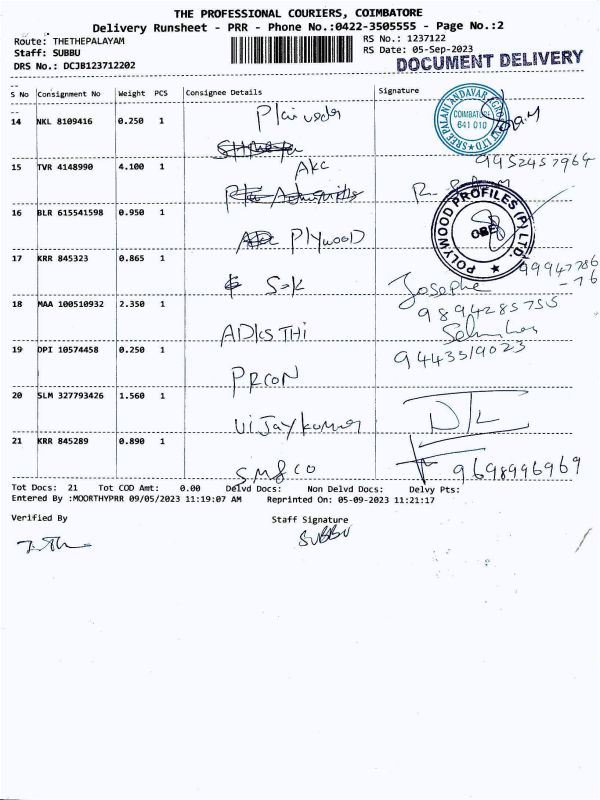 THE PROFESSIONAL COURIERS, COIMBATORE
Delivery Runsheet - PRR - Phone No.:0422-3505555 - Page No.:2
Route: THETHEPALAYAM RS No.: 1237122
Staff: SUBBU RS Date: 05-Sep-2023
DRS No.: DCJB123712202 DOCUMENT DELIVERY
S No Consignment No Weight PCS Consignee Details Signature
14 NKL 8109416 0.250 1
SREE PALANI ANDAVAR AGRO (P) LTD COIMBATORE 641 010
9952457964
15 TVR 4148990 4.100 1 AKC
16 BLR 615541598 0.950 1 PlYwOOD
POLYWOOD PROFILES (P) LTD. CBE
17 KRR 845323 0.865 1 S-K
99947786
-76
Josephe
18 MAA 100510932 2.350 1 ADKSTHi
9894285755
19 DPI 10574458 0.250 1 PRCON
9443519023
20 SLM 327793426 1.560 1 Vijaykumar
21 KRR 845289 0.890 1 SM&CO
9698996969
Tot Docs: 21 Tot COD Amt: 0.00 Delvd Docs: Non Delvd Docs: Delvy Pts:
Entered By :MOORTHYPRR 09/05/2023 11:19:07 AM Reprinted On: 05-09-2023 11:21:17
Verified By Staff Signature
SUBBU